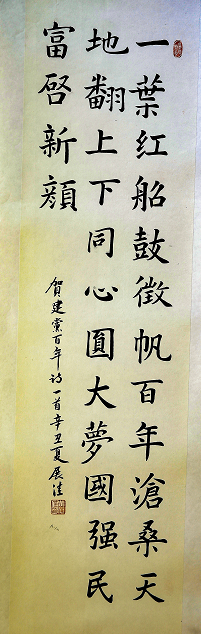 一葉红船鼓徵帆百年滄桑天
地翻上下同心圆大夢國强民
富啓新顔
賀建黨百年诗一首辛丑夏展佳